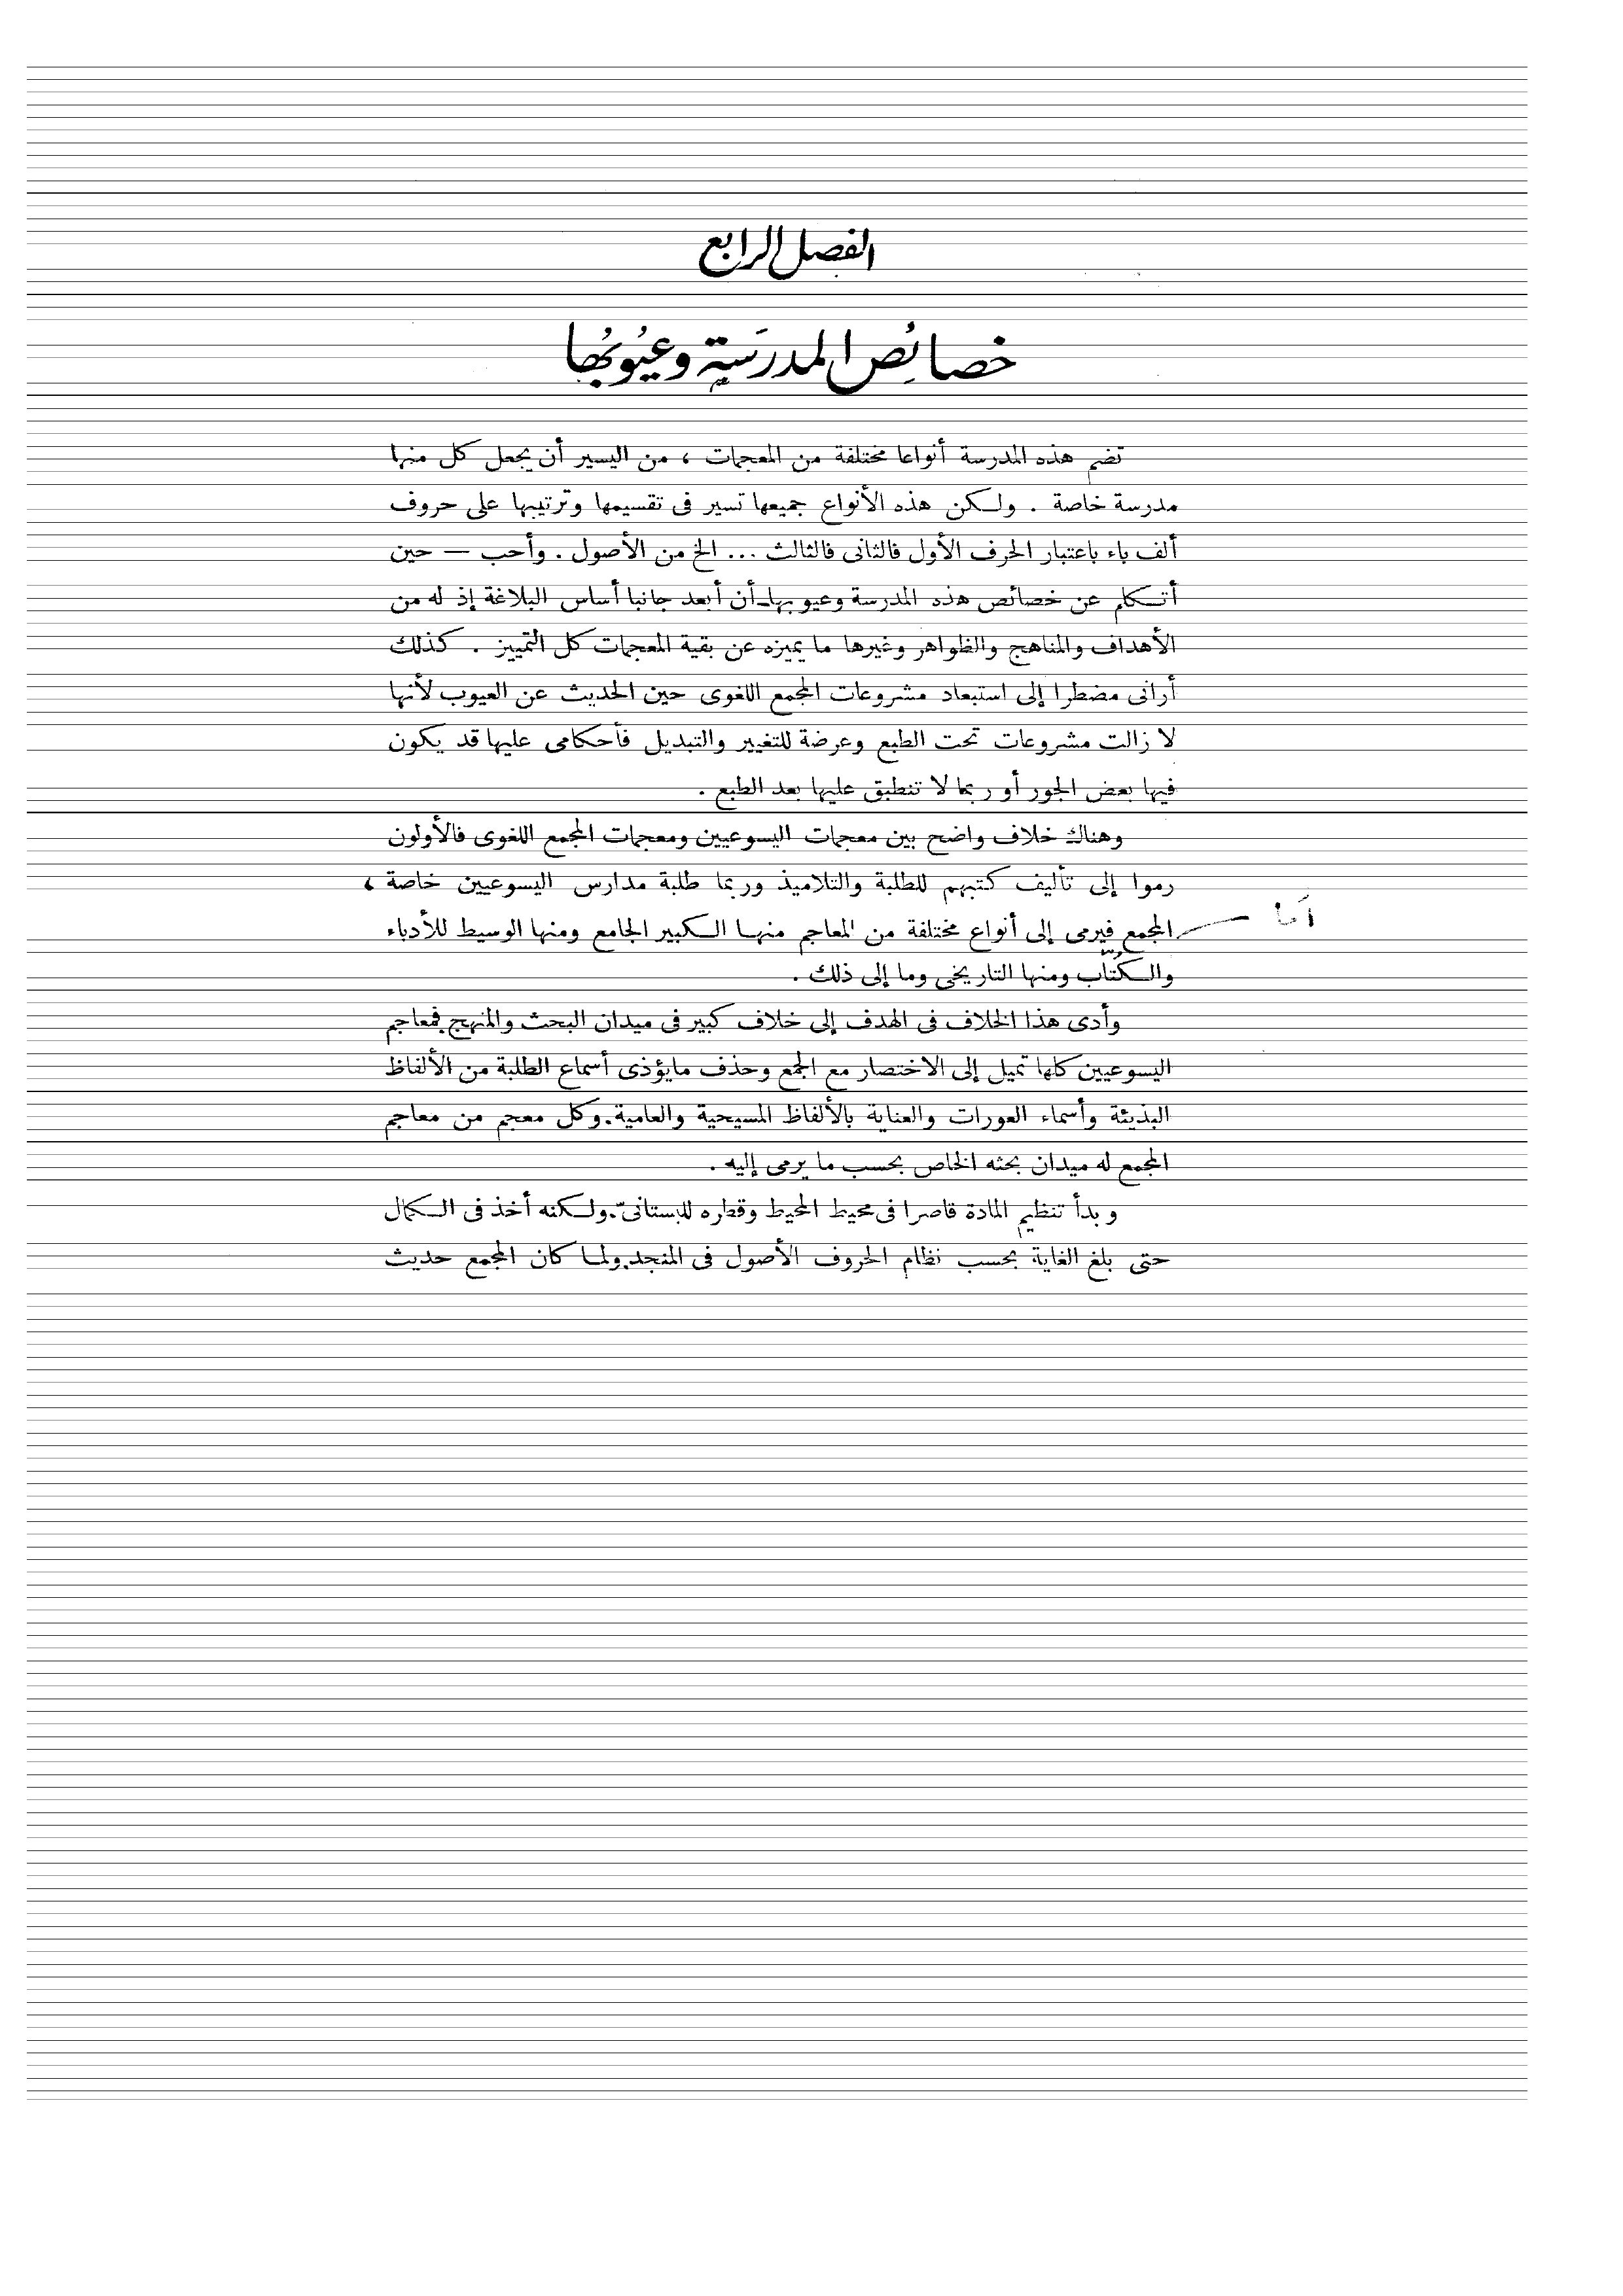 الفصل الرابع
خصائص المدرسة وعيوبها
تضم هذه المدرسة أنواعا مختلفة من المعجمات ، من اليسير أن يجعل كل منها
مدرسة خاصة . ولكن هذه الأنواع جميعها تسير فى تقسيمها وترتيبها على حروف
ألف باء باعتبار الحرف الأول فالثانى فالثالث ... الخ من الأصول . وأحب — حين
أتكلم عن خصائص هذه المدرسة وعيوبها ـ أن أبعد جانبا أساس البلاغة إذ له من
الأهداف والمناهج والظواهر وغيرها ما يميزه عن بقية المعجمات كل التمييز . كذلك
أرانى مضطرا إلى استبعاد مشروعات المجمع اللغوى حين الحديث عن العيوب لأنها
لا زالت مشروعات تحت الطبع وعرضة للتغيير والتبديل فأحكامى عليها قد يكون
فيها بعض الجور أو ربما لا تنطبق عليها بعد الطبع .
وهناك خلاف واضح بين معجمات اليسوعيين ومعجمات المجمع اللغوى فالأولون
رموا إلى تأليف كتبهم للطلبة والتلاميذ وربما طلبة مدارس اليسوعيين خاصة ،
أما
المجمع فيرمى إلى أنواع مختلفة من المعاجم منها الكبير الجامع ومنها الوسيط للأدباء
والكُتّاب ومنها التاريخى وما إلى ذلك .
وأدى هذا الخلاف فى الهدف إلى خلاف كبير فى ميدان البحث والمنهج فمعاجم
اليسوعيين كلها تميل إلى الاختصار مع الجمع وحذف مايؤذى أسماع الطلبة من الألفاظ
البذيئة وأسماء العورات والعناية بالألفاظ المسيحية والعامية. وكل معجم من معاجم
المجمع له ميدان بحثه الخاص بحسب ما يرمى إليه .
وبدأ تنظيم المادة قاصرا فى محيط المحيط وقطره للبستانىّ. ولكنه أخذ فى الكمال
حتى بلغ الغاية بحسب نظام الحروف الأصول فى المنجد. ولما كان المجمع حديث